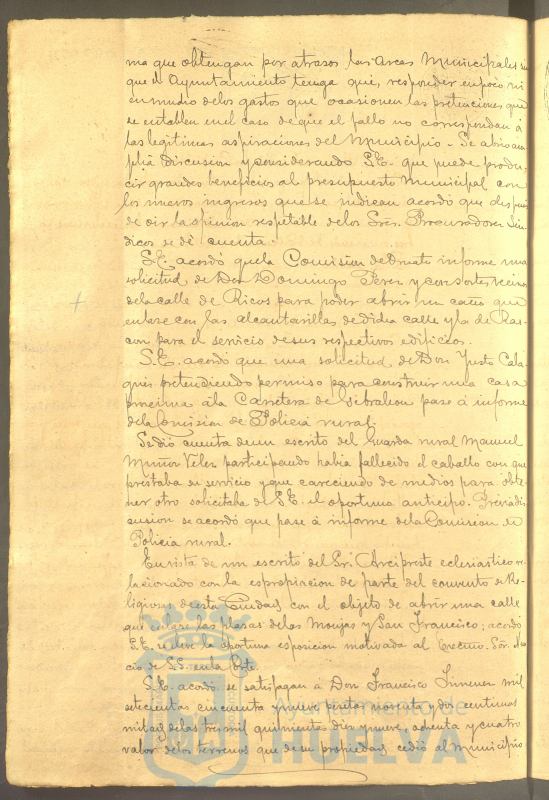 ma que obtengan por atrasos las Arcas Municipales sin
que el Ayuntamiento tenga que responder en poco ni
en mucho de los gastos que ocasionen las pretenciones que
se entablen en el caso de que el fallo no correspondan á
las legitimas aspiraciones del Municipio. Se abrió am
plia discusion y considerando S.E. que puede produ
cir grandes beneficios al presupuesto Municipal con
los nuevos ingresos que se indican acordó que despues
de oir la opinion respetable de los Sres. Procuradores Sin
dicos se dé cuenta.
S.E. acordó que la Comision de Ornato informe una
solicitud de Don Domingo Perez y consortes vecinos
de la calle de Ricos para poder abrir un caño que
enlace con las alcantarillas de dicha calle y la de Ras
con para el servicio de sus respectivos edificios.
S.E. acordó que una solicitud de Don Justo Cala
quis pretendiendo permiso para construir una casa
proxima á la Carretera de Gibraleon pase á informe
de la Comision de Policia rural.
Se dió cuenta de un escrito del Guarda rural Manuel
Muñoz Velez participando habia fallecido el caballo con que
prestaba su servicio y que careciendo de medios para obte
ner otro solicitaba de S.E. el oportuno anticipo. Previa dis
cusion se acordó que pase á informe de la Comision de
Policia rural.
En vista de un escrito del Sr. Arcipreste eclesiastico re
lacionado con la espropiacion de parte del convento de Re
ligiosas de esta Ciudad con el objeto de abrir una calle
que enlace las plazas de las Monjas y San Francisco; acordó
S.E. se eleve la oportuna esposicion motivada al Excmo. Sor. Nun
cio de S.S. en la Corte.
S.E. acordó se satisfagan á Don Francisco Jimenez mil
setecientas cincuenta y nueve pesetas noventa y dos centimos
mitad de las tres mil quinientas diez y nueve, ochenta y cuatro
valor de los terrenos que de su propiedad cedió al Municipio
Ayuntamiento de
HUELVA